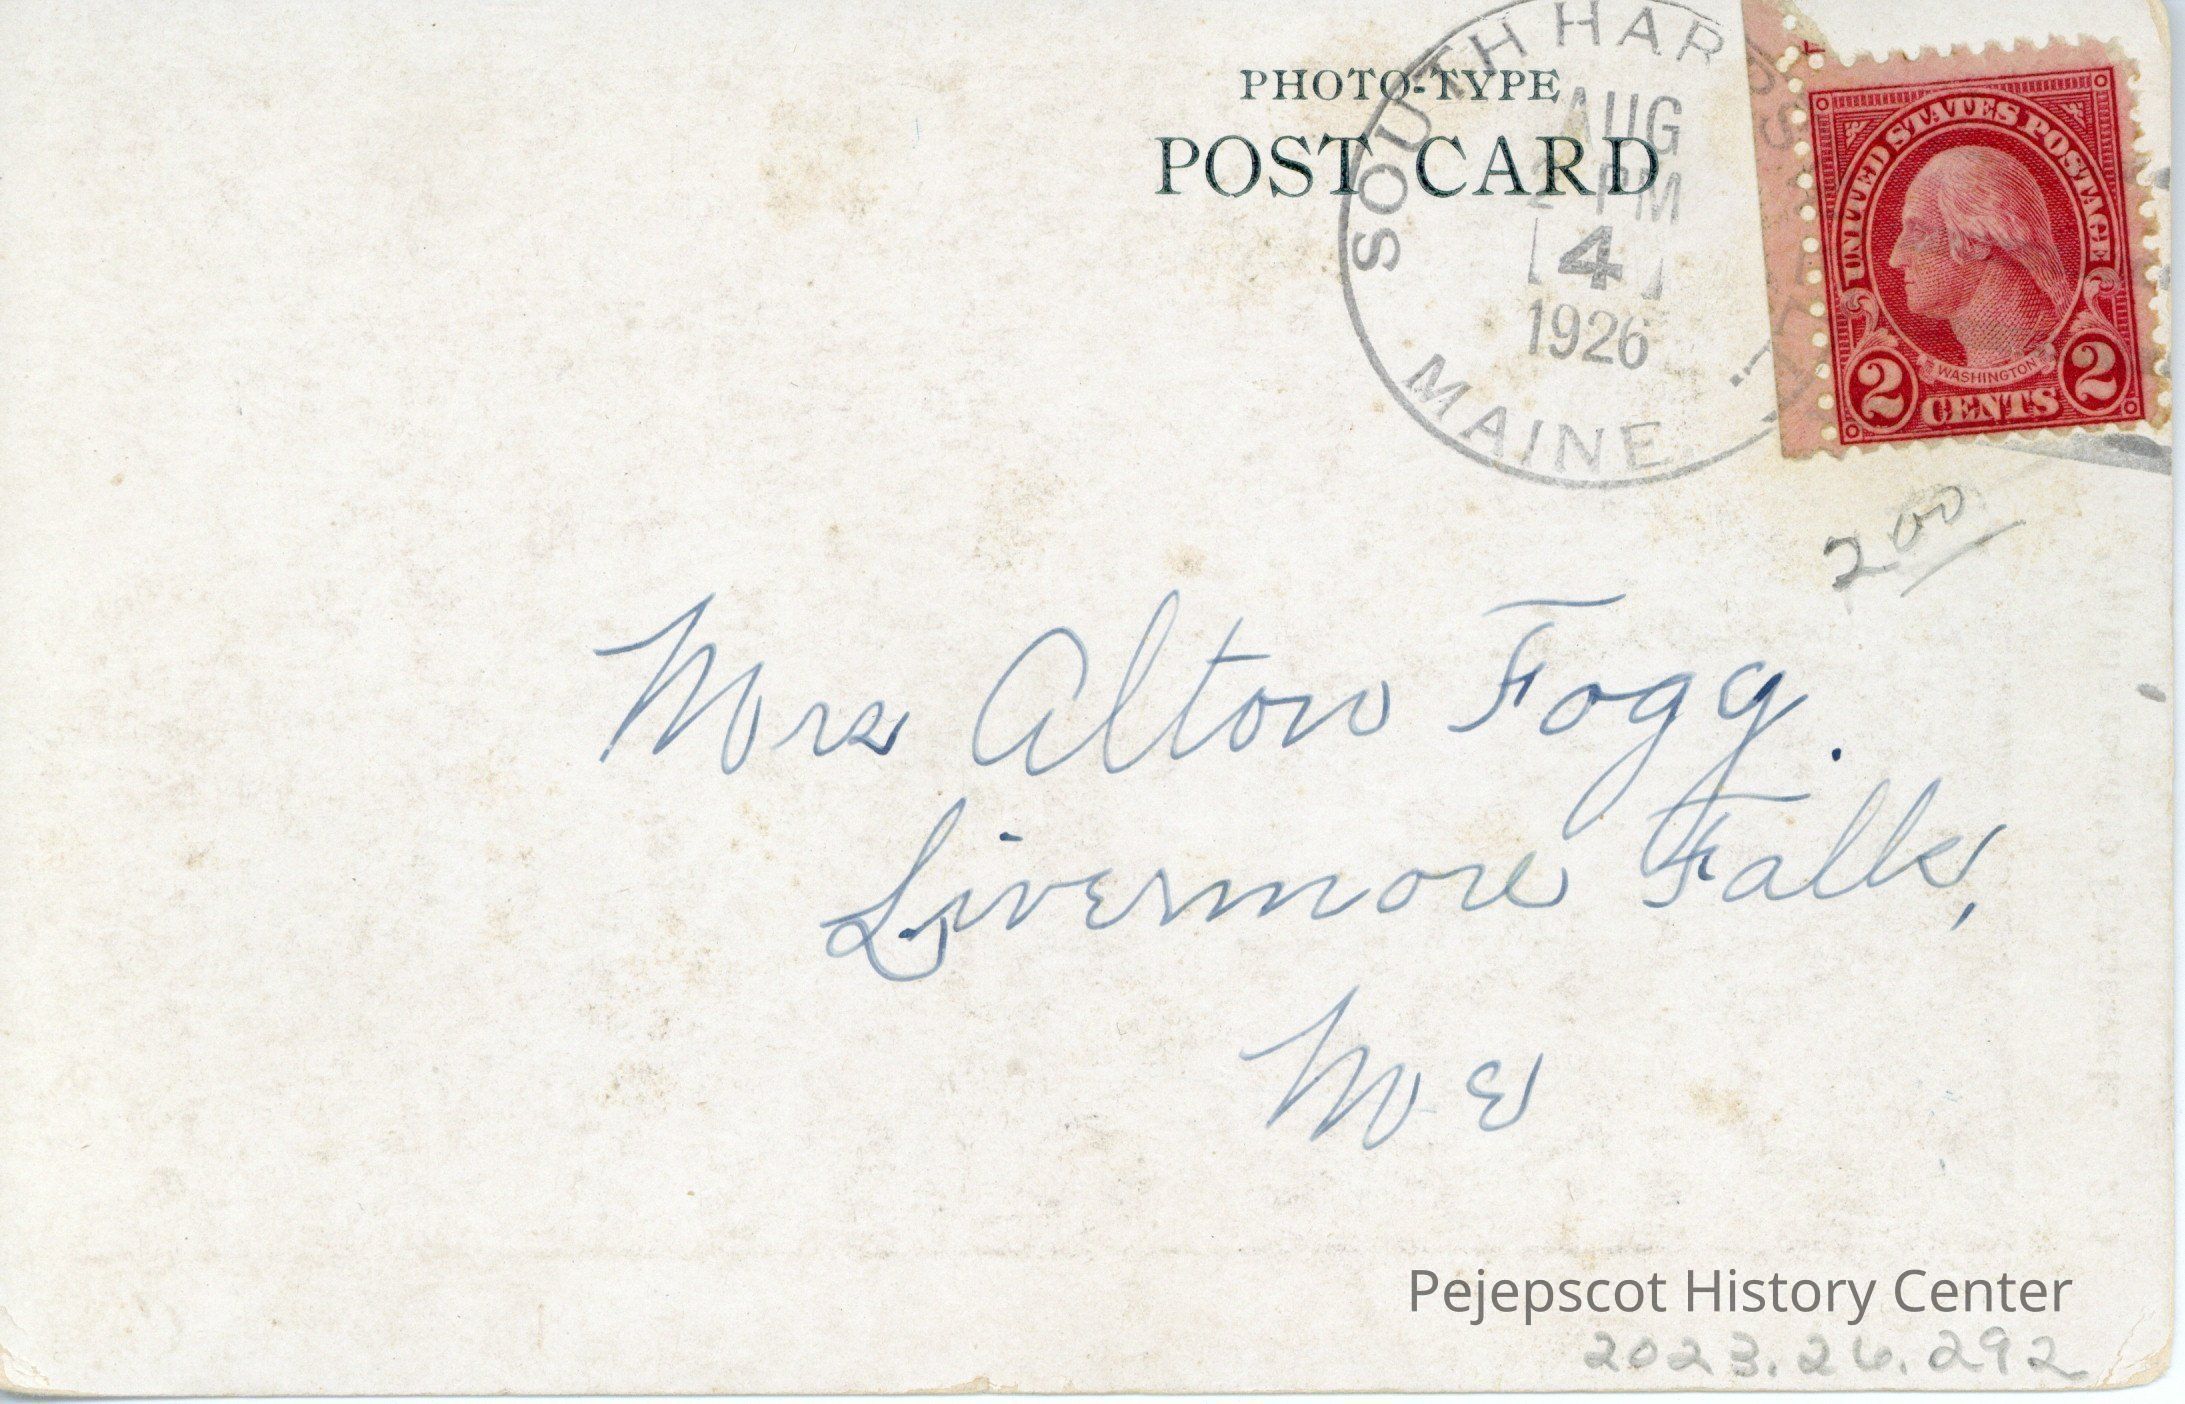 PHOTO-TYPE
POST CARD
SOUTH HARPSWELL
AUG
2 PM
4
1926
MAINE
UNITED STATES POSTAGE
WASHINGTON
2 CENTS 2
2 00
Mrs Alton Fogg.
Livermore Falls,
Me
Pejepscot History Center
2023.26.292